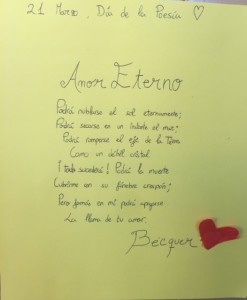 21 Marzo, Día de la Poesía ♡
Amor Eterno
Podrá nublarse el sol eternamente;
Podrá secarse en un instante el mar;
Podrá romperse el eje de la Tierra
Como un débil cristal.
¡todo sucederá! Podrá la muerte
Cubrirme con su fúnebre crespón;
Pero jamás en mí podrá apagarse
La llama de tu amor.
Bécquer